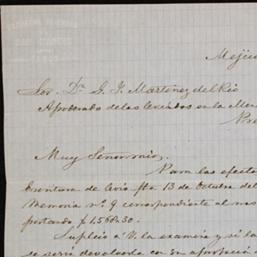 Mejic
Sor. Dr. G. J. Martínez del Río
Apoderado de los
Muy Señor mio,
Para los efecto
Escritura de Avio fha. 13 de Octubre del
Memoria nº 9 correspondiente al mes
portando $1,560.30.
Suplico a V. la examine y si la
se sirva devolverla con su aprobacion